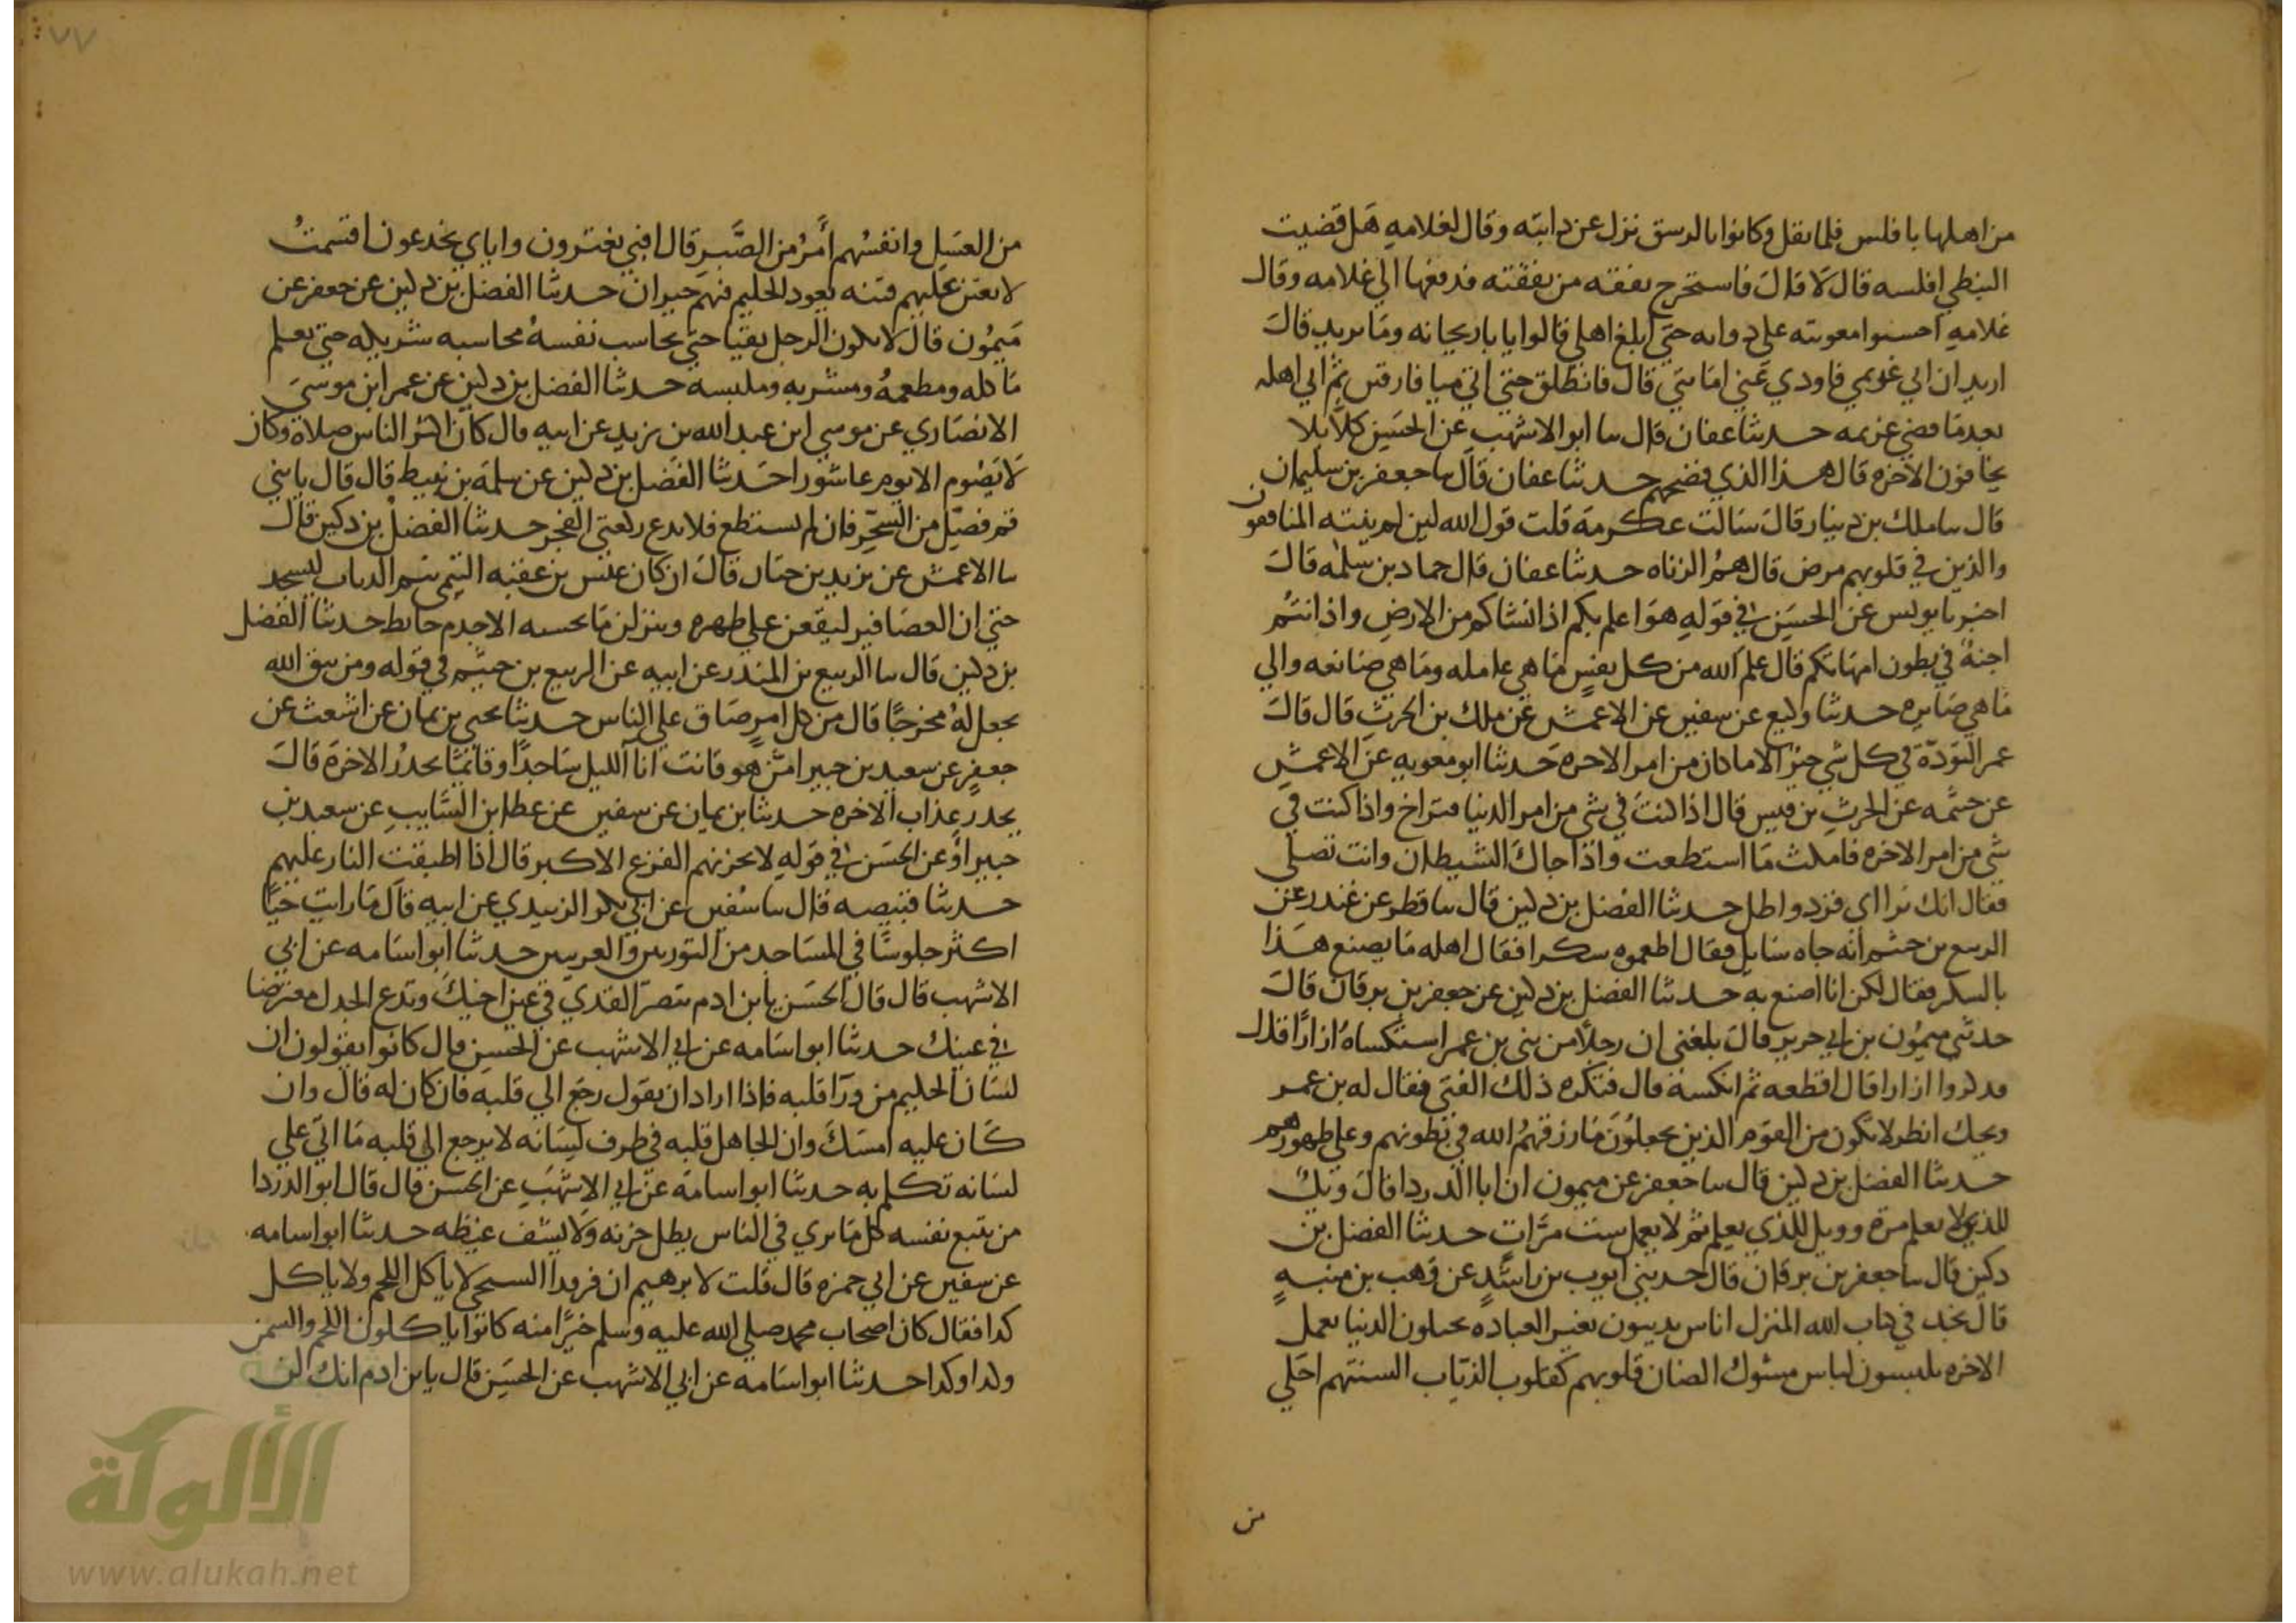 من اهلها بافلس فلما نقل وكانوا بالرستق نزل عن دابته وقال لغلامه هل قضيت
النبطي افلسه قال لا قال فاستخرج نفقه من نفقته فدفعها الي غلامه وقال
غلامه احسنوا معونته علي دوابه حتي ابلغ اهلي قالوا يابا ريحانه وما يريد قال
اريد ان اتي غريمي فاودي عني امانتي قال فانطلق حتي اتي ميافارقين ثم اتي اهله
بعدما قضي غريمه حدثنا عفان قال سا ابو الاشهب عن الحسن كلا بلا
يخافون الاخره قال هذا الذي فضحهم حدثنا عفان قال سا جعفر بن سليمان
قال سا ملك بن دينار قال سالت عكرمة قلت قول الله لين لم ينته المنافقون
والذين في قلوبهم مرض قال هم الزناه حدثنا عفان قال حماد بن سلمه قال
اخبرنا يونس عن الحسن في قوله هو اعلم بكم اذ انشاكم من الارض واذ انتم
اجنة في بطون امهاتكم قال علم الله من كل نفس ما هي عامله وما هي صانعه والي
ما هي صايره حدثنا وكيع عن سفين عن الاعمش عن ملك بن الحرث قال قال
عمر التودة في كل شي خير الا ما كان من امر الاخره حدثنا ابو معويه عن الاعمش
عن خيثمه عن الحرث بن قيس قال اذا كنت في شي من امر الدنيا فتراخ واذا كنت في
شي من امر الاخره فامكث ما استطعت واذا جاك الشيطان وانت تصلي
فقال انك تراي فزد واطل حدثنا الفضل بن دكين قال سا فطر عن غندر عن
الربيع بن خثيم انه جاه سايل فقال اطعموه سكرا فقال اهله ما يصنع هذا
بالسكر فقال لكن انا اصنع به حدثنا الفضل بن دكين عن جعفر بن برقان قال
حدثني ميمون بن ابي جرير قال بلغني ان رجلا من بني بن عمر استكساه ازارا قال
قد كروا ازارا قال اقطعه ثم انكسه قال فتكره ذلك الفتي فقال له بن عمر
ويحك انظر لا تكون من القوم الذين يجعلون ما رزقهم الله في بطونهم وعلي ظهورهم
حدثنا الفضل بن دكين قال سا جعفر عن ميمون ان ابا الدردا قال ويك
للذي لا يعلم مرة وويل للذي يعلم ثم لا يعمل ست مرات حدثنا الفضل بن
دكين قال سا جعفر بن برقان قال حدثني ايوب بن راشد عن وهب بن منبه
قال نجد في كتاب الله المنزل اناس يدينون بغير العباده يختلون الدنيا بعمل
الاخره يلبسون لباس مسوك الضان قلوبهم كقلوب الذياب السنتهم احلي
من
٧٧
من العسل وانفسهم امر من الصبر قال افبي يغترون واياي يخدعون اقسمت
لابعثن عليهم فتنه يعود الحليم فيهم حيران حدثنا الفضل بن دكين عن جعفر عن
ميمون قال لا يكون الرجل تقيا حتي يحاسب نفسه محاسبه شريكه حتي يعلم
ماكله ومطعمه ومشربه وملبسه حدثنا الفضل بن دكين عن عمر ابن موسي
الانصاري عن موسي ابن عبد الله بن يزيد عن ابيه قال كان اكثر الناس صلاة وكان
لا يصوم الا يوم عاشورا حدثنا الفضل بن دكين عن سلمة بن نبيط قال قال يا بني
قم فصل من السحر فان لم تستطع فلا تدع ركعتي الفجر حدثنا الفضل بن دكين قال
سا الاعمش عن يزيد بن حيان قال ان كان عنبس بن عقبه التيمي تيم الرباب ليسجد
حتي ان العصافير ليقعن علي ظهره وينزلن ما يحسبه الا جدم حايط حدثنا الفضل
بن دكين قال سا الربيع بن المنذر عن ابيه عن الربيع بن خثيم في قوله ومن يتق الله
يجعل له مخرجا قال من كل امر ضاق علي الناس حدثنا يحي بن يمان عن اشعث عن
جعفر عن سعيد بن جبير امن هو قانت انا الليل ساجدا وقائما يحذر الاخرة قال
يحذر عذاب الاخره حدثنا بن يمان عن سفين عن عطا ابن السايب عن سعيد بن
جبير او عن الحسن في قوله لا يحزنهم الفزع الاكبر قال اذا اطبقت النار عليهم
حدثنا قبيصه قال سا سفين عن ابي بكر الزبيدي عن ابيه قال ما رايت حيا
اكثر جلوسا في المساجد من الثوريين والعرنيين حدثنا ابو اسامه عن ابي
الاشهب قال قال الحسن يا بن ادم تبصر القذي في عين اخيك وتدع الجدل معترضا
في عينك حدثنا ابو اسامه عن ابي الاشهب عن الحسن قال كانوا يقولون ان
لسان الحليم من ورا قلبه فاذا اراد ان يقول رجع الي قلبه فان كان له قال وان
كان عليه امسك وان الجاهل قلبه في طرف لسانه لا يرجع الي قلبه ما اتي علي
لسانه تكلم به حدثنا ابو اسامه عن ابي الاشهب عن الحسن قال قال ابو الدردا
من يتبع نفسه كل ما يري في الناس يطل حزنه ولا يشف غيظه حدثنا ابو اسامه
عن سفين عن ابي حمزه قال قلت لابرهيم ان فرقدا السبخي لا ياكل اللحم ولا ياكل
كدا فقال كان اصحاب محمد صلي الله عليه وسلم خيرا منه كانوا ياكلون اللحم والسمن
وكدا وكدا حدثنا ابو اسامه عن ابي الاشهب عن الحسن قال يا بن ادم انك لن
الألوكة
www.alukah.net